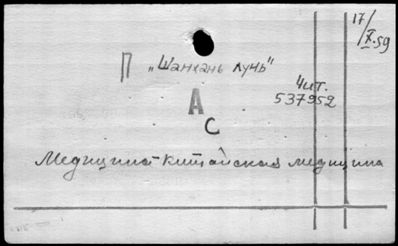 17/X.59
П „Шанхань лунь"
Чит.
537952
А
С
Медицина-Китайская медицина